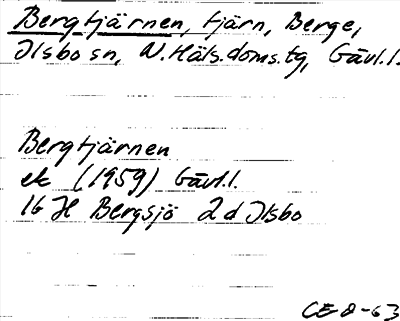 Bergtjärnen, tjärn, Berge,
Ilsbo sn, N. Häls. doms. tg, Gävl. l.
Bergtjärnen
ek (1959) Gävl. l.
16 H Bergsjö 2 d Ilsbo
CE-8-63